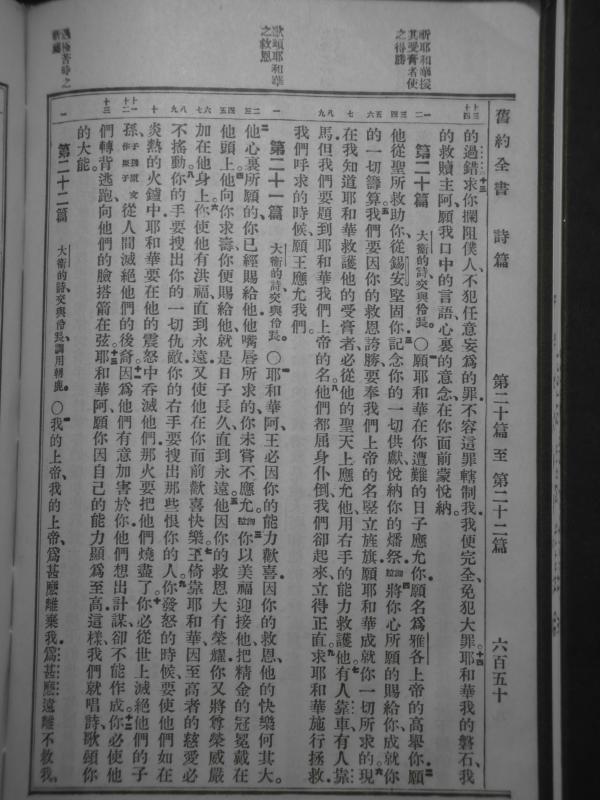 舊約全書 詩篇 第二十篇至第二十二篇 六百五十
祈耶和華援
其受膏者使
之得勝
的過錯求你攔阻僕人、不犯任意妄為的罪、不容這罪轄制我、我便完全、免犯大罪耶和華我的磐石、我
的救贖主阿、願我口中的言語、心裏的意念、在你面前蒙悅納。
第二十篇 大衞的詩、交與伶長。〇願耶和華在你遭難的日子應允你、願名為雅各上帝的高舉你、願
他從聖所救助你、從錫安堅固你、記念你的一切供獻、悅納你的燔祭。細拉將你心所願的賜給你、成就你
的一切籌算。我們要因你的救恩誇勝、要奉我們上帝的名豎立旌旗、願耶和華成就你一切所求的。現
在我知道耶和華救護他的受膏者、必從他的聖天上應允他、用右手的能力救護他。有人靠車、有人靠
馬、但我們要題到耶和華我們上帝的名。他們都屈身仆倒、我們卻起來、立得正直。求耶和華施行拯救、
我們呼求的時候、願王應允我們。
歌頌耶和華
之救恩
第二十一篇 大衞的詩、交與伶長。〇耶和華阿、王必因你的能力歡喜、因你的救恩、他的快樂何其大。
他心裏所願的、你已經賜給他、他嘴唇所求的、你未嘗不應允。細拉你以美福迎接他、把精金的冠冕戴在
他頭上。他向你求壽、你便賜給他、就是日子長久、直到永遠。他因你的救恩、大有榮耀、你又將尊榮威嚴
加在他身上。你使他有洪福、直到永遠、又使他在你面前歡喜快樂。王倚靠耶和華、因至高者的慈愛、必
不搖動。你的手要搜出你的一切仇敵、你的右手要搜出那些恨你的人。你發怒的時候、要使他們如在
炎熱的火鑪中、耶和華要在他的震怒中吞滅他們、那火要把他們燒盡了。你必從世上滅絕他們的子
孫、子孫原文作果子從人間滅絕他們的後裔。因為他們有意加害於你、他們想出計謀、卻不能作成。你必使他
們轉背逃跑、向他們的臉搭箭在弦。耶和華阿、願你因自己的能力顯為至高、這樣、我們就唱詩、歌頌你
的大能。
第二十二篇 大衞的詩、交與伶長、調用朝鹿。〇我的上帝、我的上帝、為甚麽離棄我、為甚麽遠離不救我、